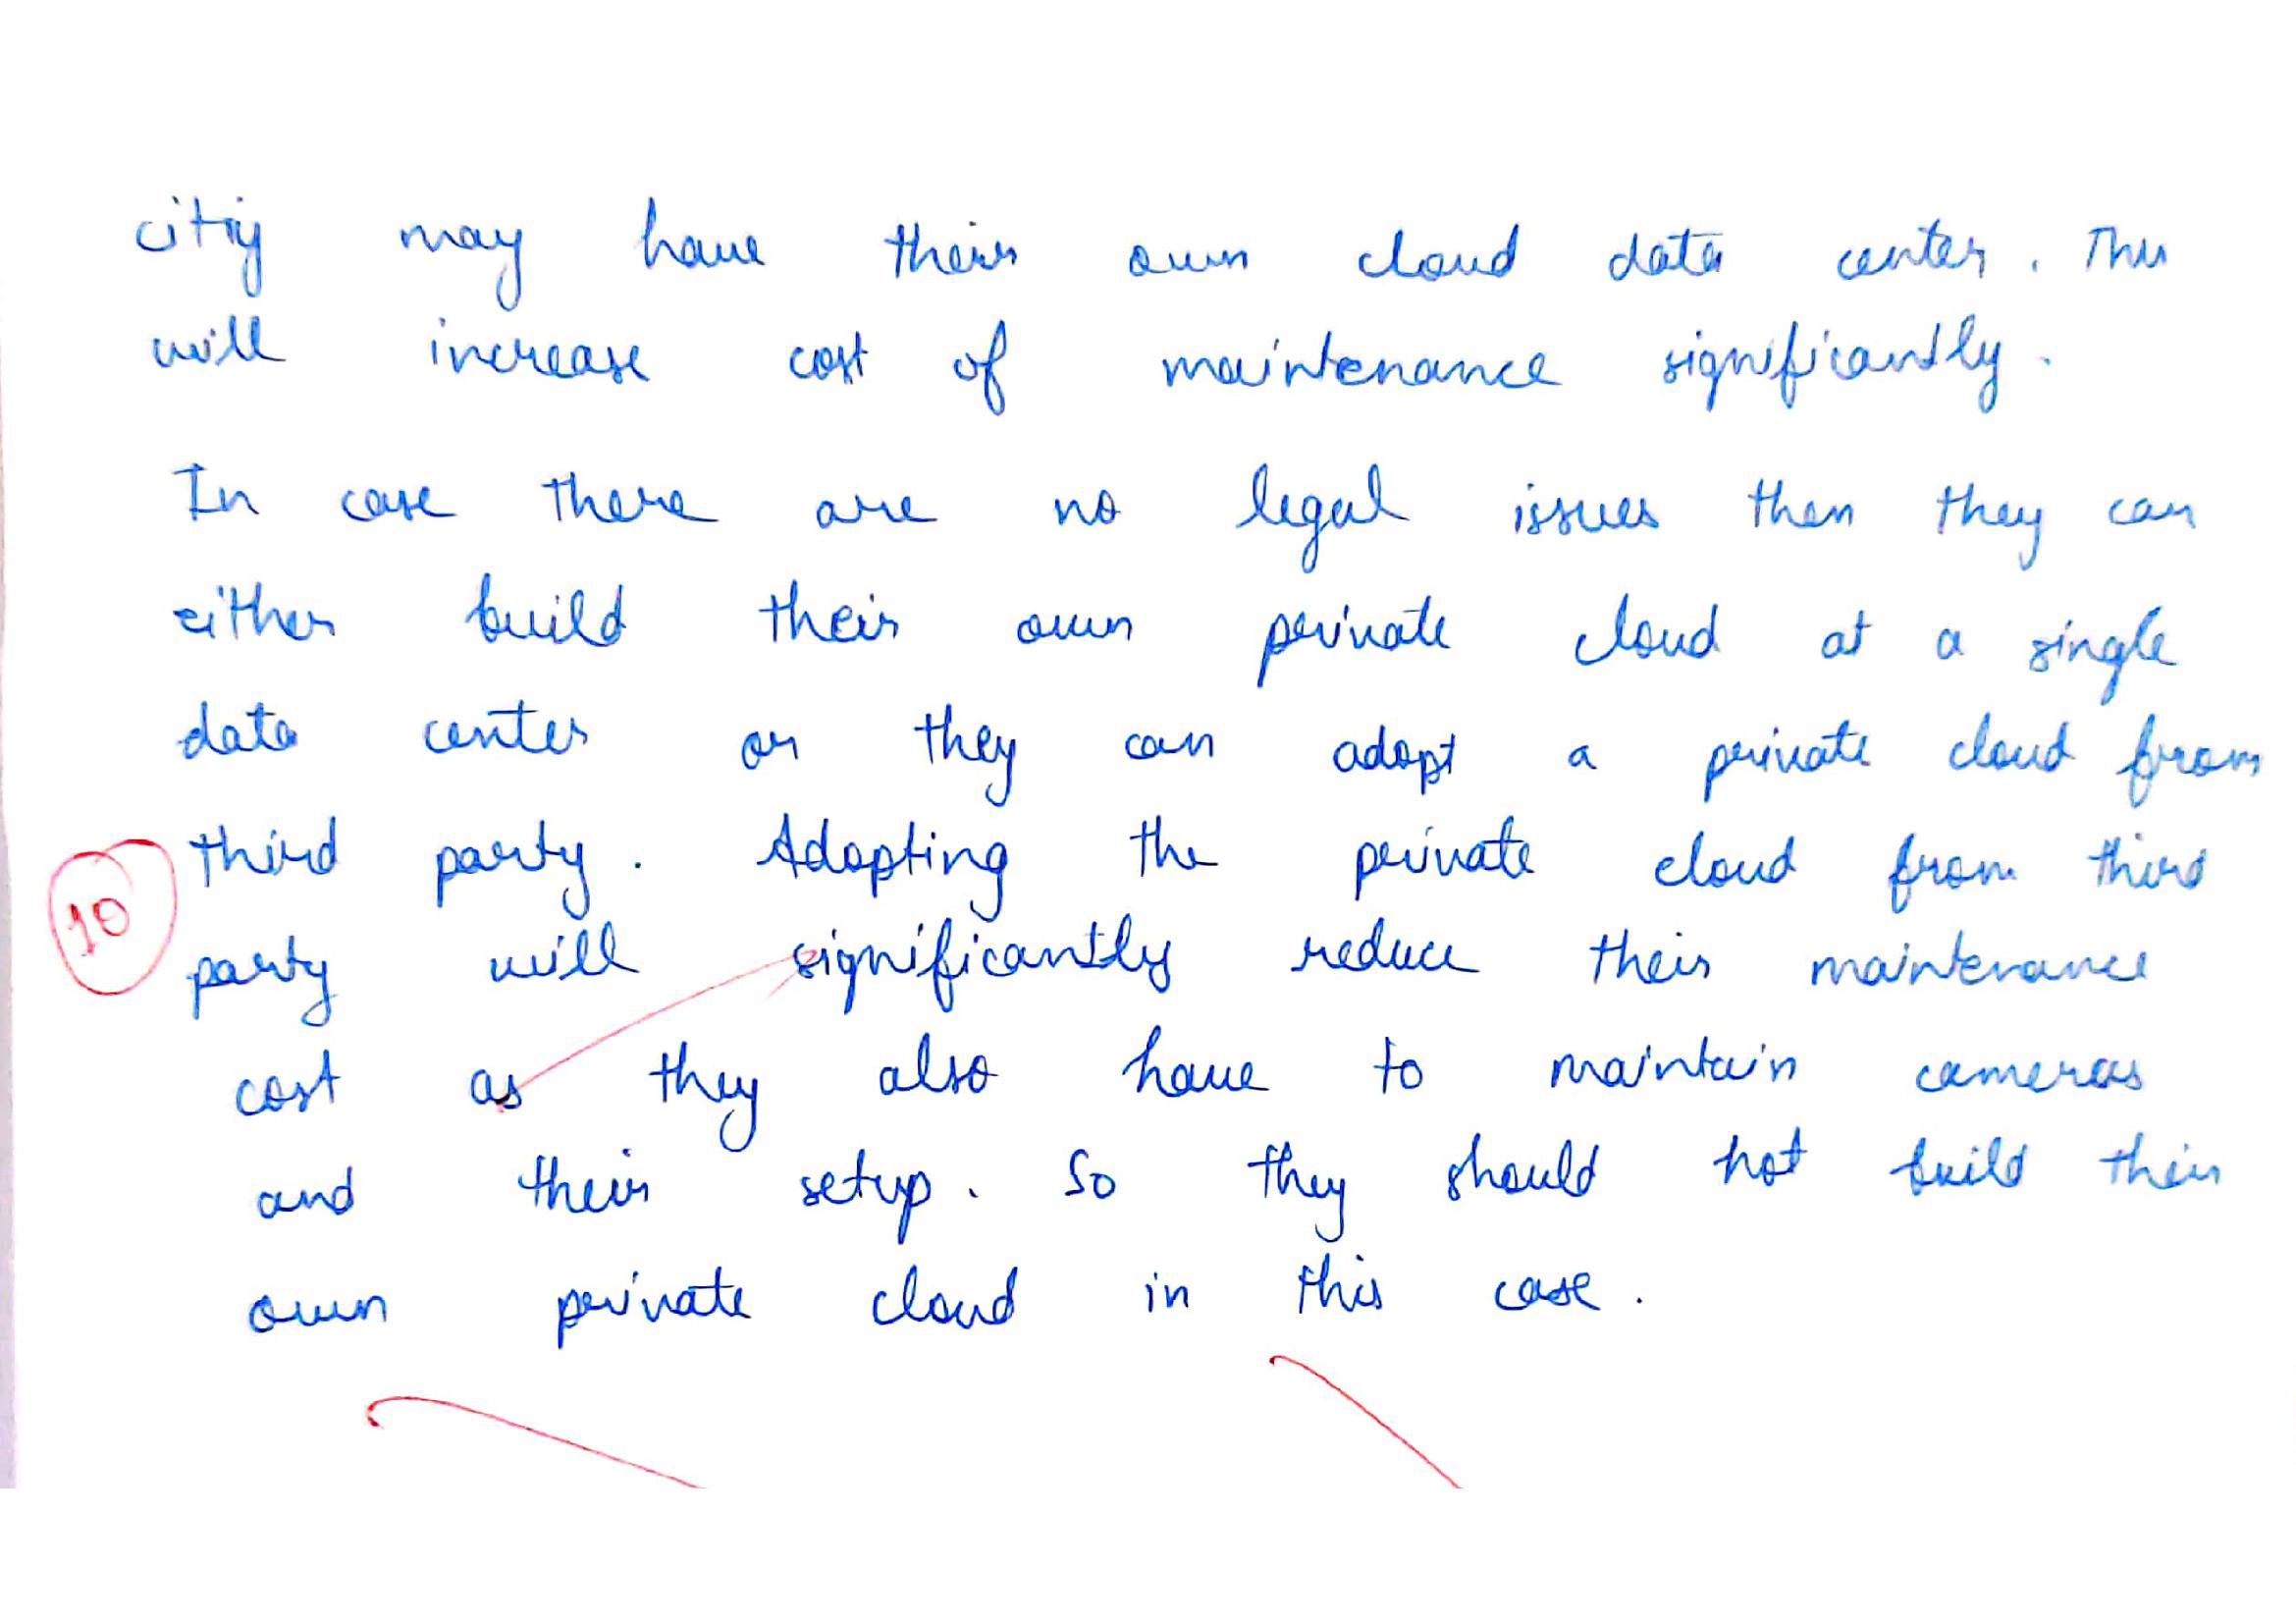 city may have their own cloud data center. This
will increase cost of maintenance significantly.
In case there are no legal issues then they can
either build their own private cloud at a single
data center or they can adopt a private cloud from
third party. Adopting the private cloud from third
10
party will significantly reduce their maintenance
cost as they also have to maintain cameras
and their setup. So they should not build their
own private cloud in this case.